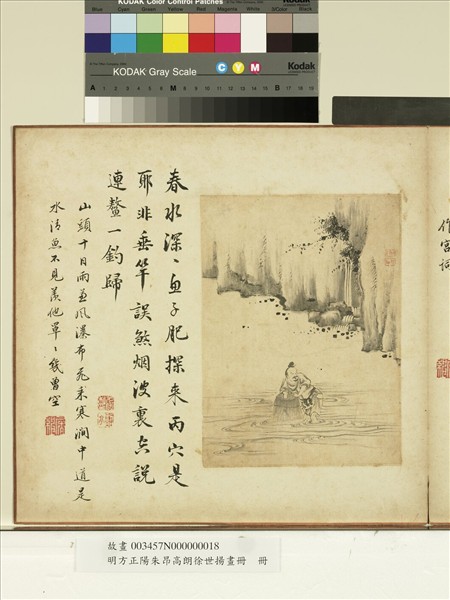 KODAK Color Control Patches
Blue Cyan Green Yellow Red Magenta White 3/Color Black
KODAK Gray Scale
C Y M
Kodak
A 1 2 3 4 5 6 M 8 9 10 11 12 13 14 15 B 17 18 19
作宮詞
春水深、魚子肥探來丙穴是
耶非垂竿誤煞烟波裏空說
連鰲一釣歸
山頭十日雨兼風瀑布飛來寒澗中道是
水清魚不見羨他罩、幾曾空
故畫 003457N000000018
明方正陽朱昂高朗徐世揚畫冊 冊